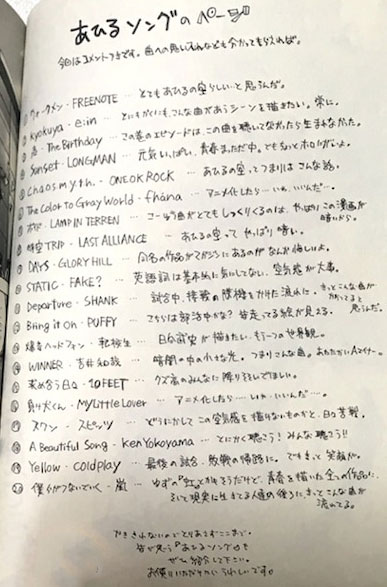 あひるソングのページ
今回はコメントつきです。曲への思い入れなども分かってもらえれば。
ウォークマン・FREENOTE … とてもあひるの空らしいと思うんだ。
② kyokuya・e:in … とにもかくにも、こんな曲が合うシーンを描きたい。常に。
The Birthday … この巻のエピソードは、この曲を聴いてなかったら生まれなかった。
Sunset・LONGMAN … 元気いっぱい、青春まっただ中。でもちょっとホロリがいいよ。
Chaosmyth・ONE OK ROCK … あひるの空ってつまりはこんな話。
The Color to Gray World・fhána … アニメ化したら…いや、いいんだ…。
LAMP IN TERREN … この曲がとてもしっくりくるのは、やっぱりこの漫画が暗いから。
時空TRIP・LAST ALLIANCE … あひるの空って やっぱり 暗い。
DAYS・GLORY HILL … 同名の作品がマガジンにあるのがなんか悔しいよ。
STATIC・FAKE? … 英語詞は基本的に気にしてない。空気感が大事。
Departure・SHANK … 試合中、接戦の
Bring it on・PUFFY … こちらは部活中かな? 皆走ってる絵が見える。
爆音ヘッドフォン・転校生 … 日向武史が描きたい、もう一つの世界観。
⑭ WINNER・吉井和哉 … 暗闇の中の小さな光。つまりこんな曲。あたたかいAマイナー。
⑮ 求め合う日々・10FEET … クズ高のみんなに贈り
⑯ 負け犬くん・My Little Lover … アニメ化したら…いや、いいんだ…。
⑰ スワン・スピッツ … どうにかしてこの空気感を描けないものかと、日々苦戦。
⑱ A Beautiful Song・Ken Yokoyama … とにかく聴こう! みんな聴こう!!
⑲ Yellow・coldplay … 最後の試合・敗戦の帰路に。でもきっと笑顔だ。
⑳ 僕らがつないでいく・嵐 … ゆずの『虹』とかもそうだけど、青春を描いた全ての作品に、
そして現実に生きてる人達の後ろに、きっとこんな曲が
流れてる。
書ききれないのでとりあえずここまで。
皆が思う『あひるソング』も
ぜひ紹介して下さい。
お便りいただけたらうれしいです。